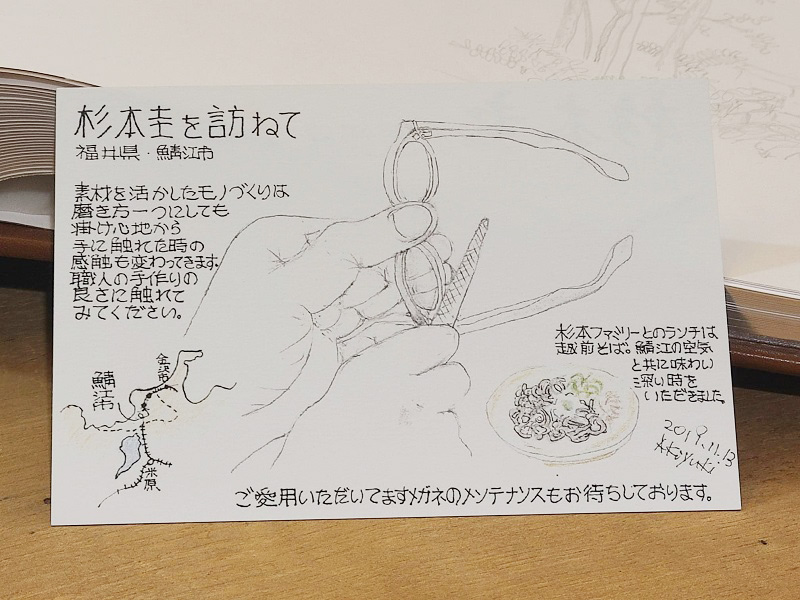 杉本圭を訪ねて
福井県・鯖江市
素材を活かしたモノづくりは
磨き方一つにしても
掛け心地から
手に触れた時の
感触も変わってきます。
職人の手作りの
良さに触れて
みてください。
金沢市
鯖江市
米原
杉本ファミリーとのランチは
越前そば。鯖江の空気
と共に味わい
深い時を
いただきました。
2019.11.13
ご愛用いただいてますメガネのメンテナンスもお待ちしております。